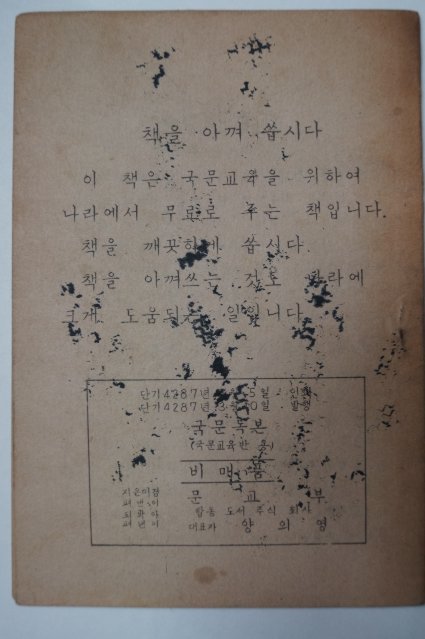 책을 아껴 씁시다
이 책은 국문교육을 위하여
나라에서 무료로 주는 책입니다.
책을 깨끗하게 씁시다
책을 아껴쓰는 것도 나라에
크게 도움되는 일입니다
단기4287년 5일 인쇄
단기4287년 3월 10일 발행
국문독본
(국문교육반 용)
비매품
문 교 부
합동 도서 주식 회사
대표자 양의영